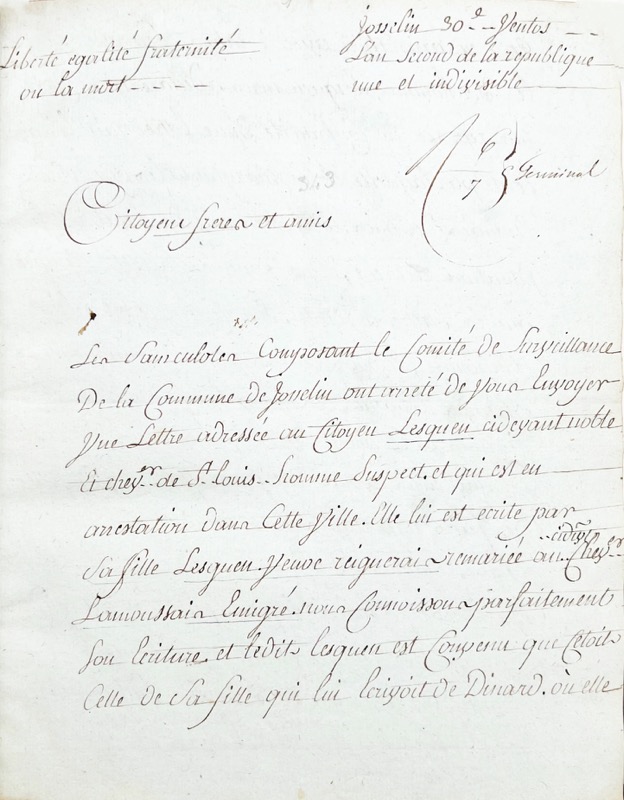 Josselin 30.e Ventos
Liberté egalité fraternité
L'an Second de la republique
ou la mort
une et indivisible
6
7
Germinal
343
Citoyens freres et amis
Les Sansculotes Composant le Comité de Surveillance
De la Commune de Josselin ont arreté de Vous Envoyer
Vne Lettre adressée au Citoyen Lesquen cidevant noble
Et chev.er de St. Louis. homme Suspect. et qui est en
arrestation dans Cette Ville. Elle lui est ecrite par
cidev.t
Sa fille Lesquen Veuve remariée au Chev.er
Lamoussais Emigré. nous Connoissons parfaitement
Son Ecriture. et ledit Lesquen est Convenu que C'etoit
Celle de Sa fille qui lui Ecrivoit de Dinard. où elle